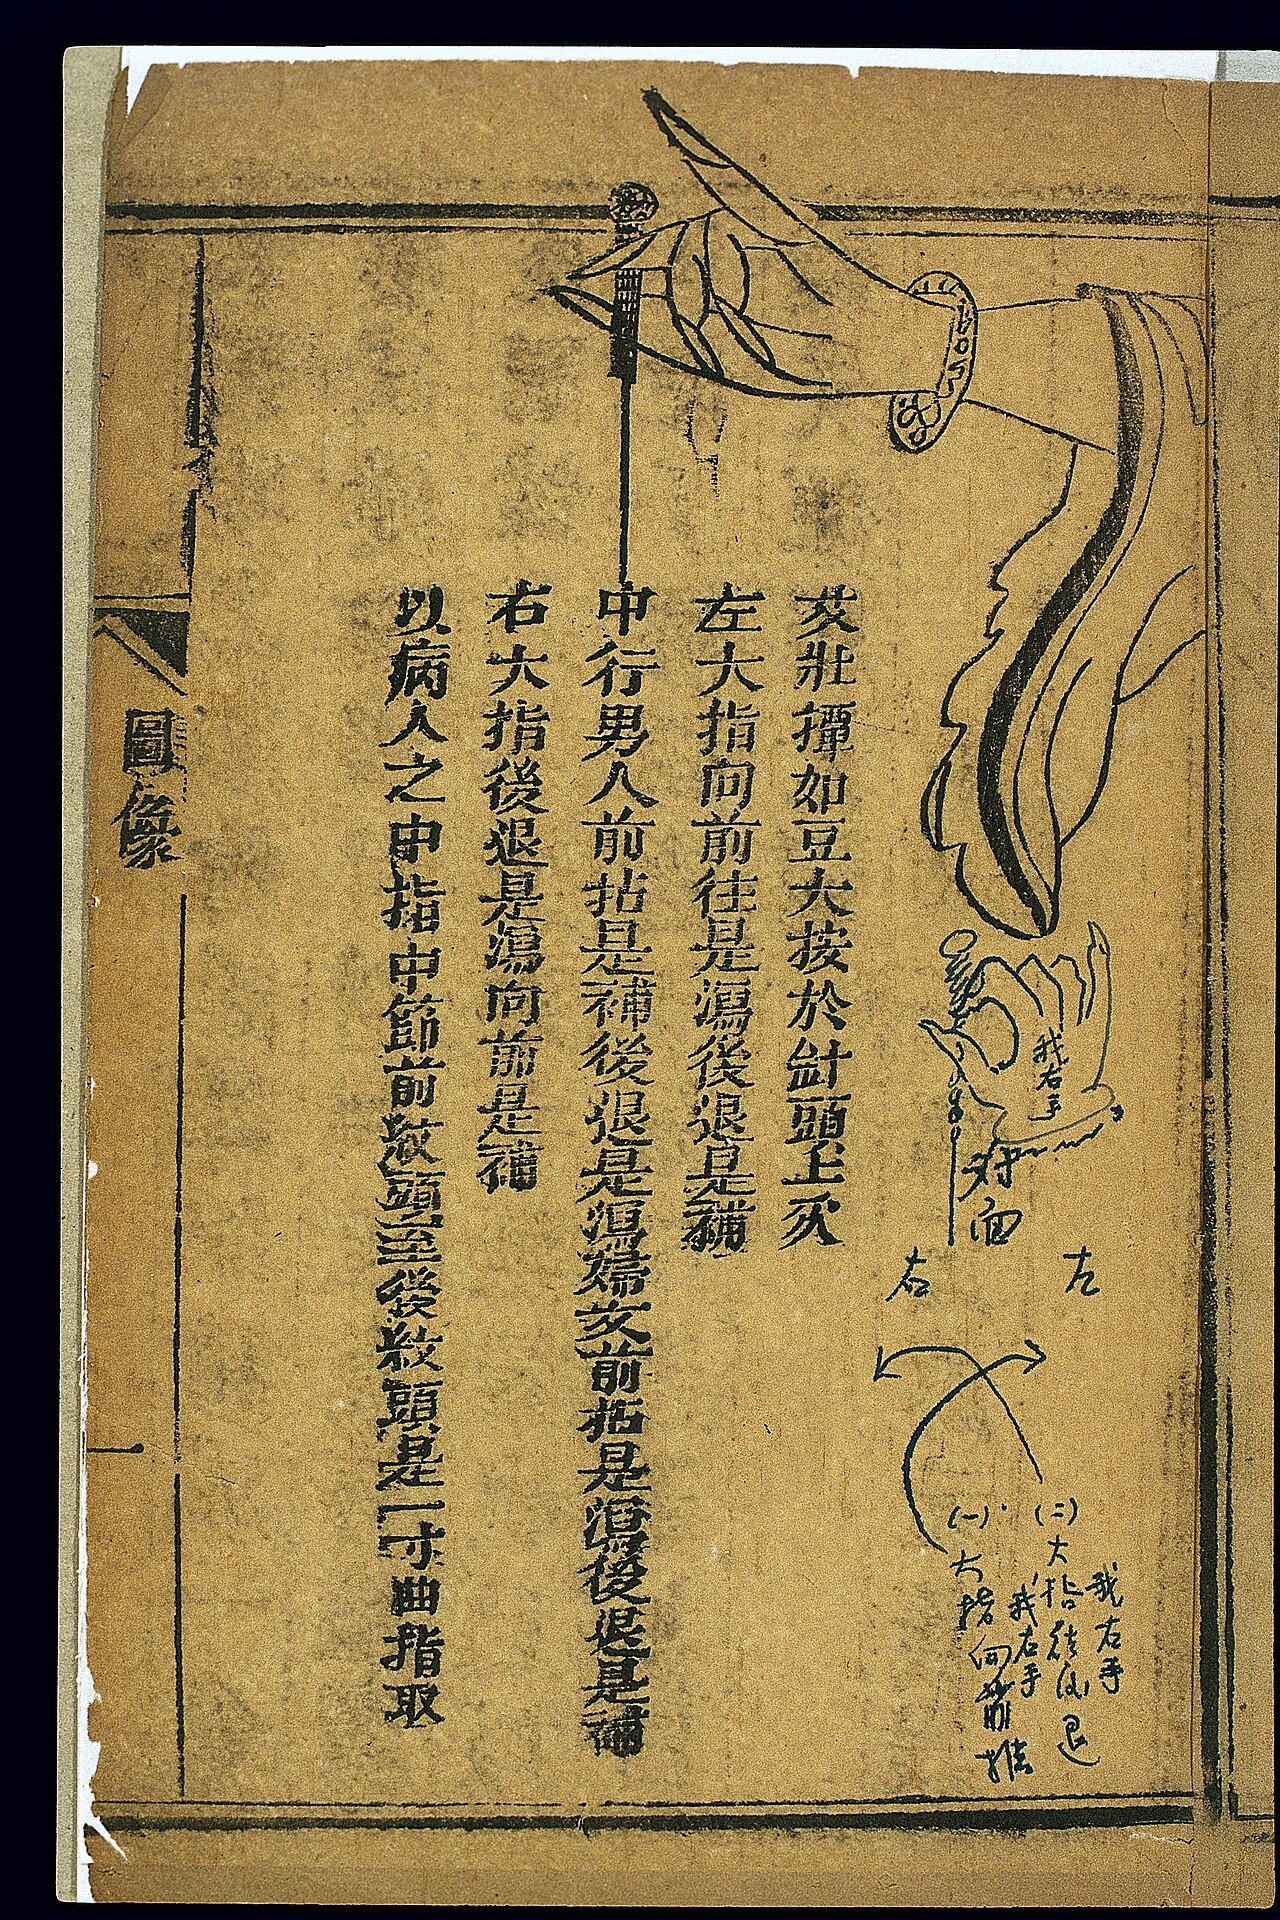 艾壯撢如豆大按於針頭上灸
左大指向前往是瀉後退是補
中行男人前拈是補後退是瀉婦女前拈是瀉後退是補
右大指後退是瀉向前是補
以病人之中指中節前紋頭至後紋頭是一寸曲指取
圖像
一
我右手
对面
左
右
我右手
(二)大指往后退
我右手
(一)大指向前推